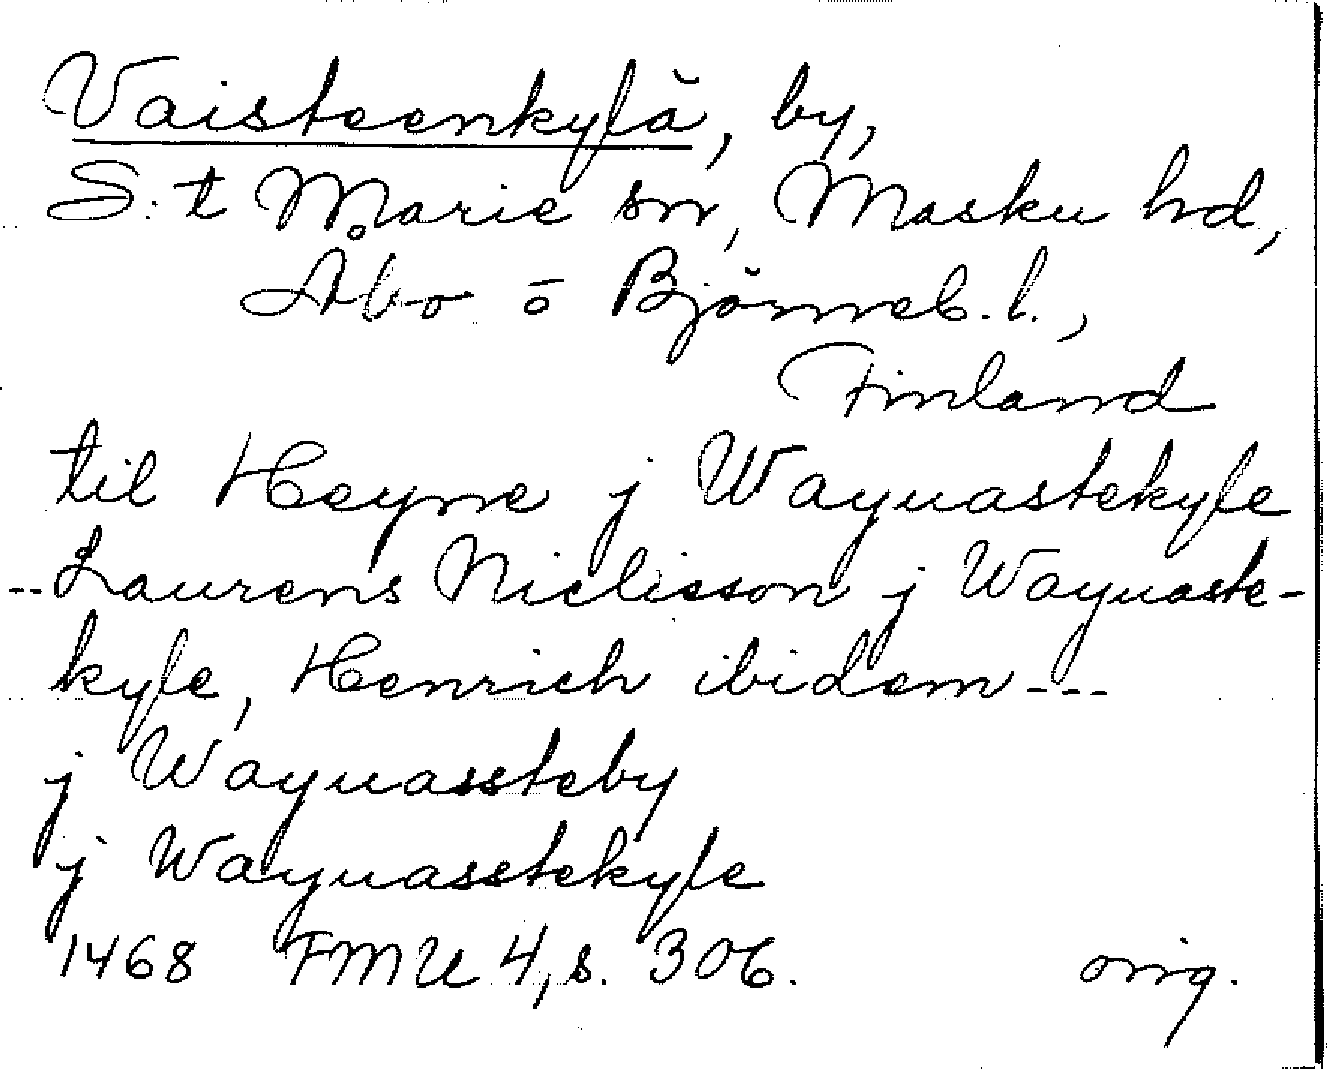 Vaisteenkylä, by,
S:t Marie sn, Masku hd,
Åbo o Björneb. l.,
Finland
til Heyne j Wayuastekyle
--Laurens Niclisson j Wayuaste-
kyle, Henrich ibidem---
j Wayuassteby
j Wayuasstekyle
1468 FMU 4, s. 306. orig.